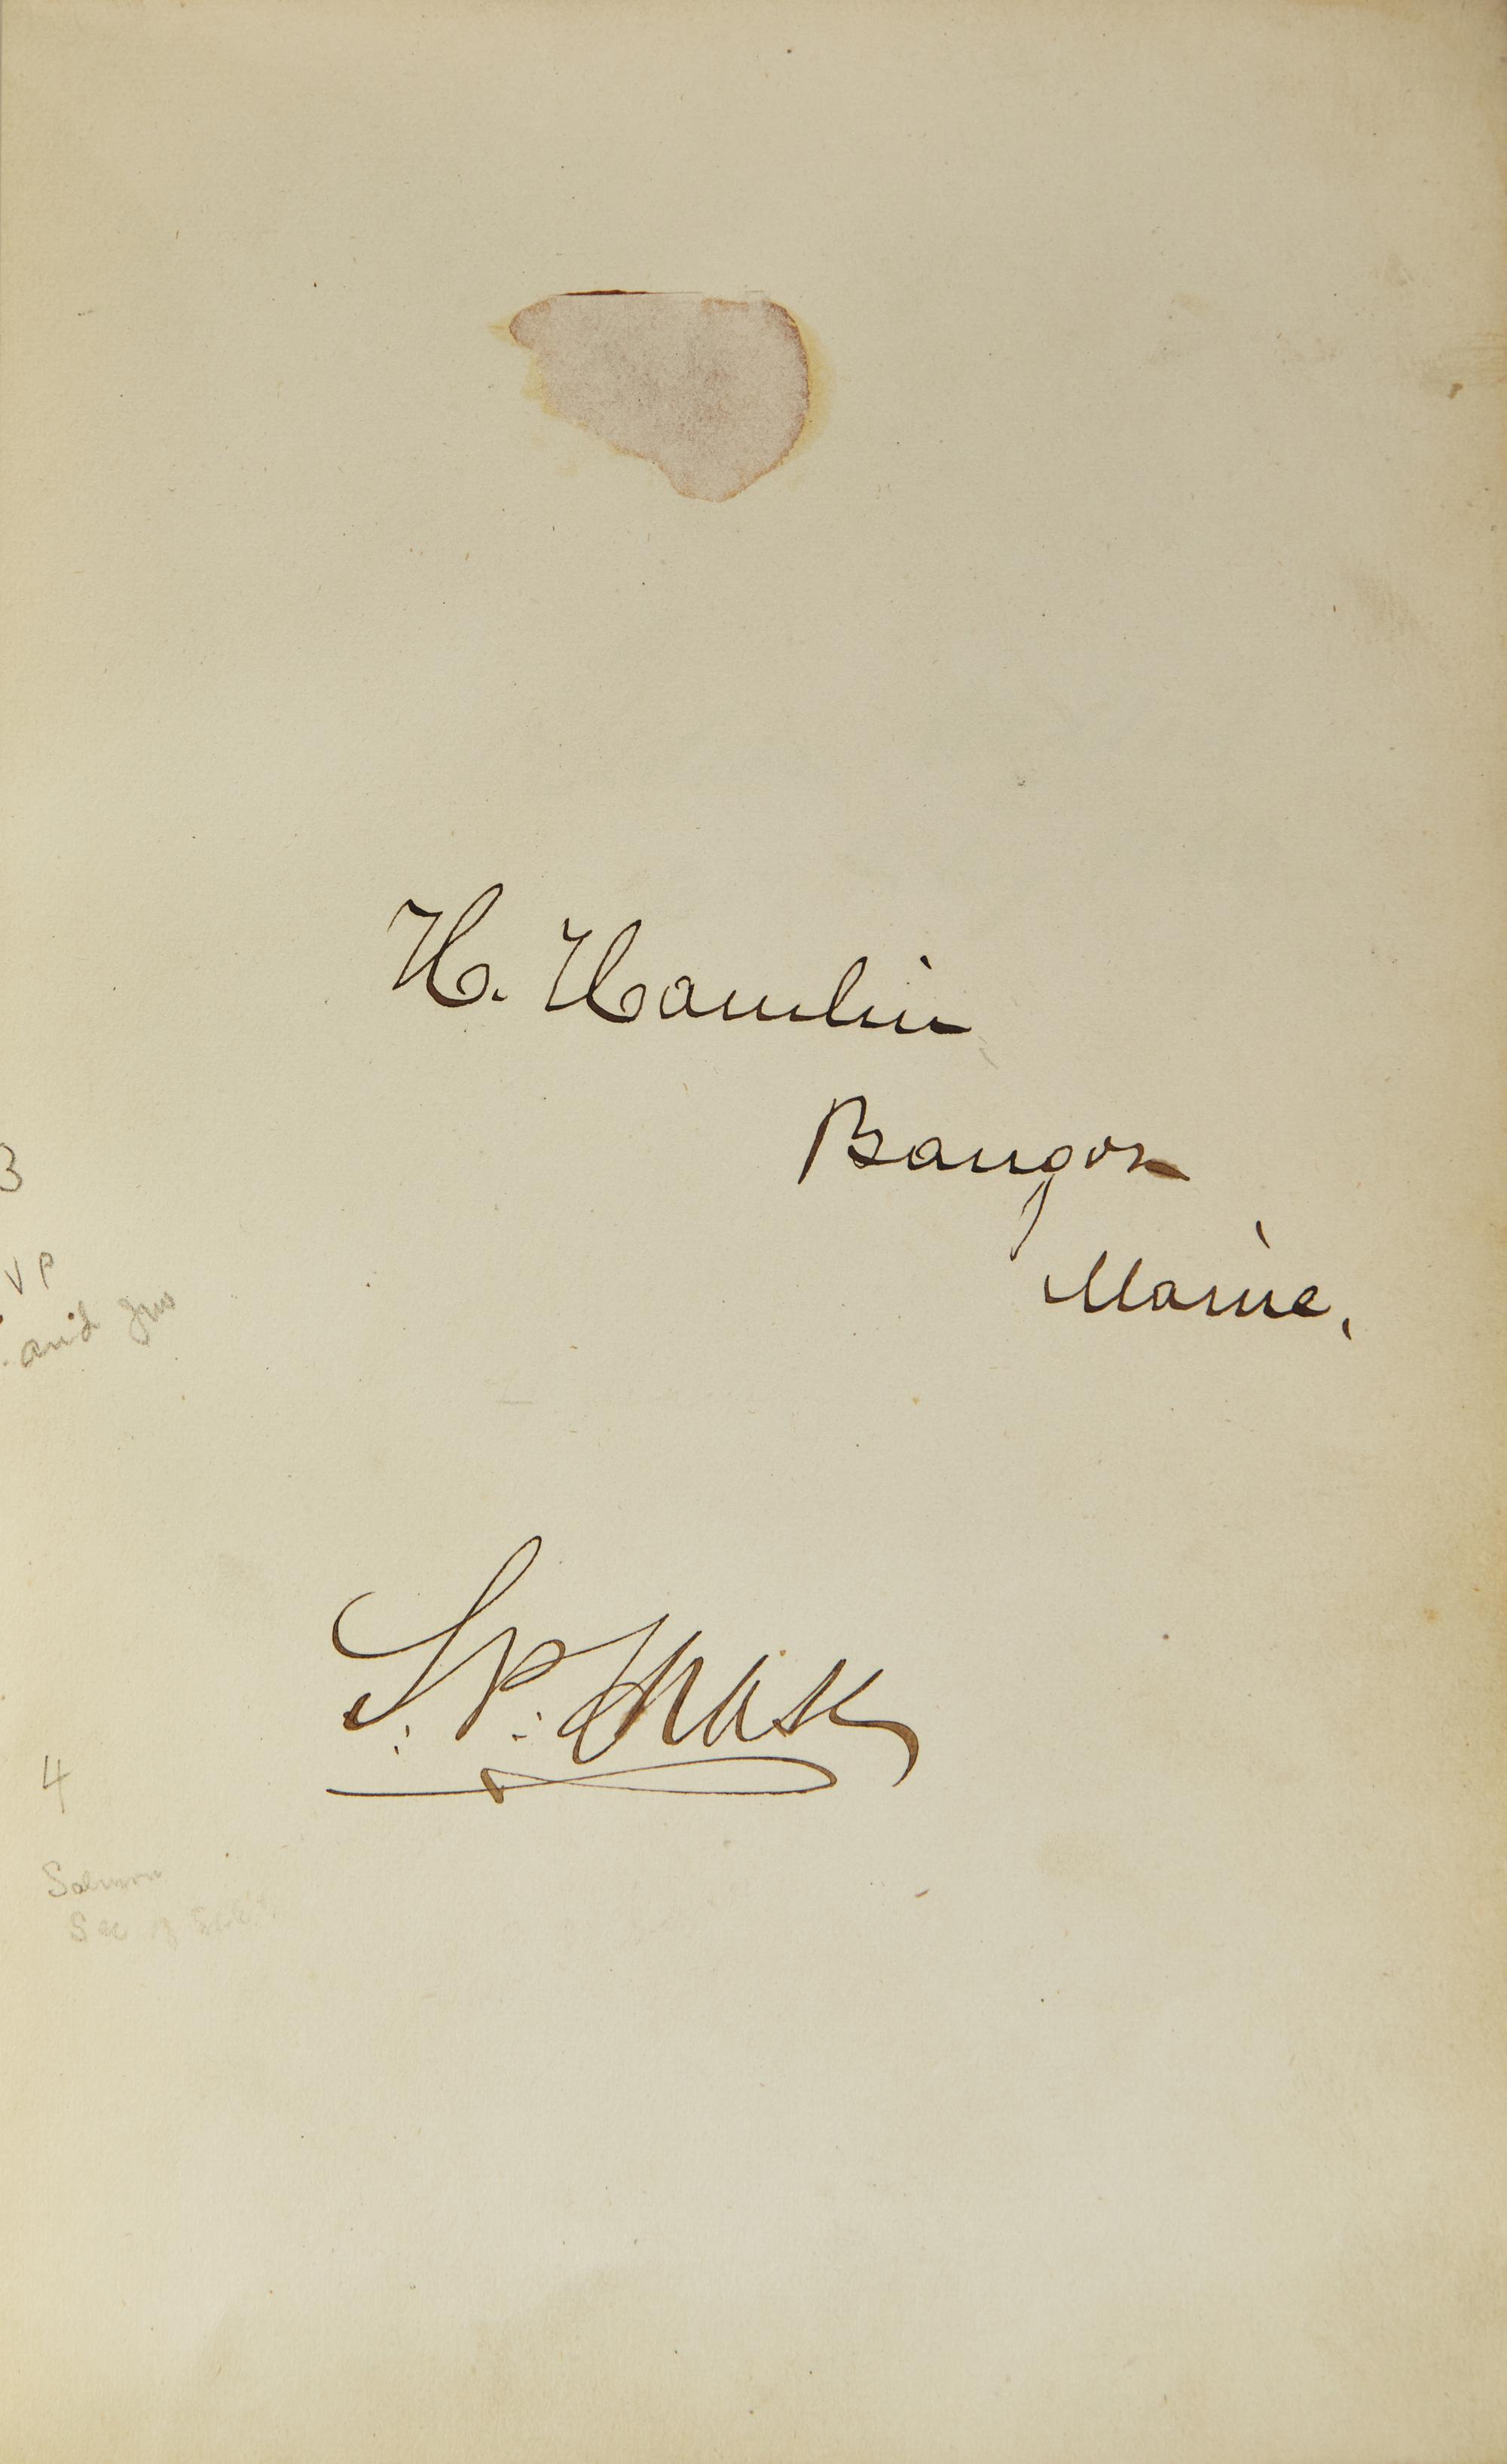 H. Hamlin
Bangor
Maine.
3
VP
and
S. P. Chase
4
Salmon
Sec of